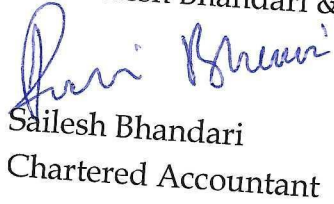 Bhandari &
Sailesh Bhandari
Chartered Accountant